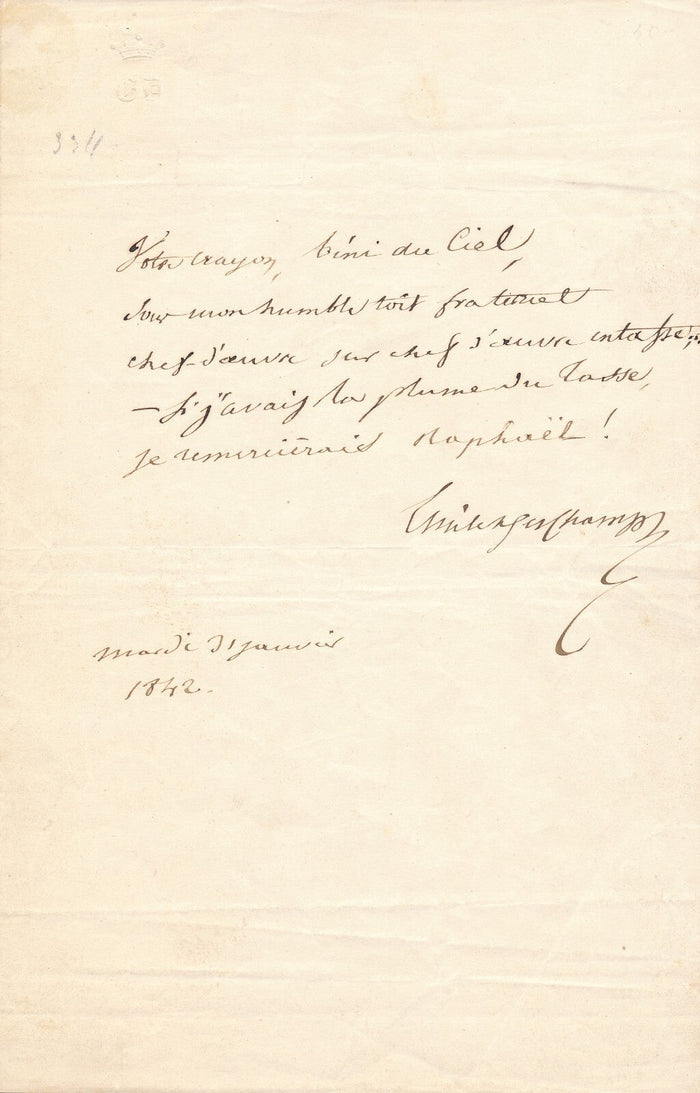 334
Votre crayon, béni du Ciel,
Sous mon humble toit fraternel
chef-d'œuvre sur chef d'œuvre entasse;
— Si j'avais la plume du Tasse,
je remercierais Raphaël !
Emile Deschamps
mardi 31 janvier
1842.